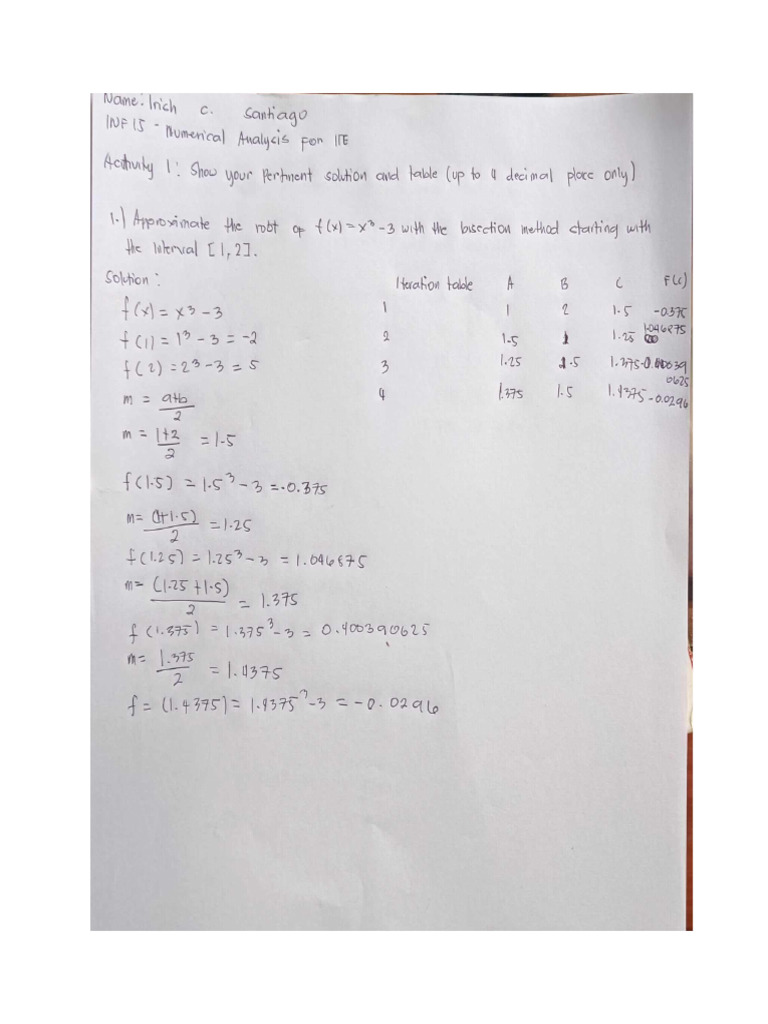 Name: Irich C. Santiago
INF15 - Numerical Analysis for ITE
Activity 1: Show your Pertinent solution and table (up to 4 decimal place only)
1.) Approximate the root of f(x) = x³ - 3 with the bisection method starting with
the interval [1, 2].
Solution: Iteration table A B C F(c)
f(x) = x³ - 3 1 1 2 1.5 -0.375
f(1) = 1³ - 3 = -2 2 1.5 1 1.25 1.046875
f(2) = 2³ - 3 = 5 3 1.25 1.5 1.375 -0.400390625
m = a+b/2 4 1.375 1.5 1.4375 -0.0296
m = 1+2/2 = 1.5
f(1.5) = 1.5³ - 3 = -0.375
m = (1+1.5)/2 = 1.25
f(1.25) = 1.25³ - 3 = 1.046875
m = (1.25 + 1.5)/2 = 1.375
f(1.375) = 1.375³ - 3 = 0.400390625
m = 1.375/2 = 1.4375
f = (1.4375) = 1.4375³ - 3 = -0.0296